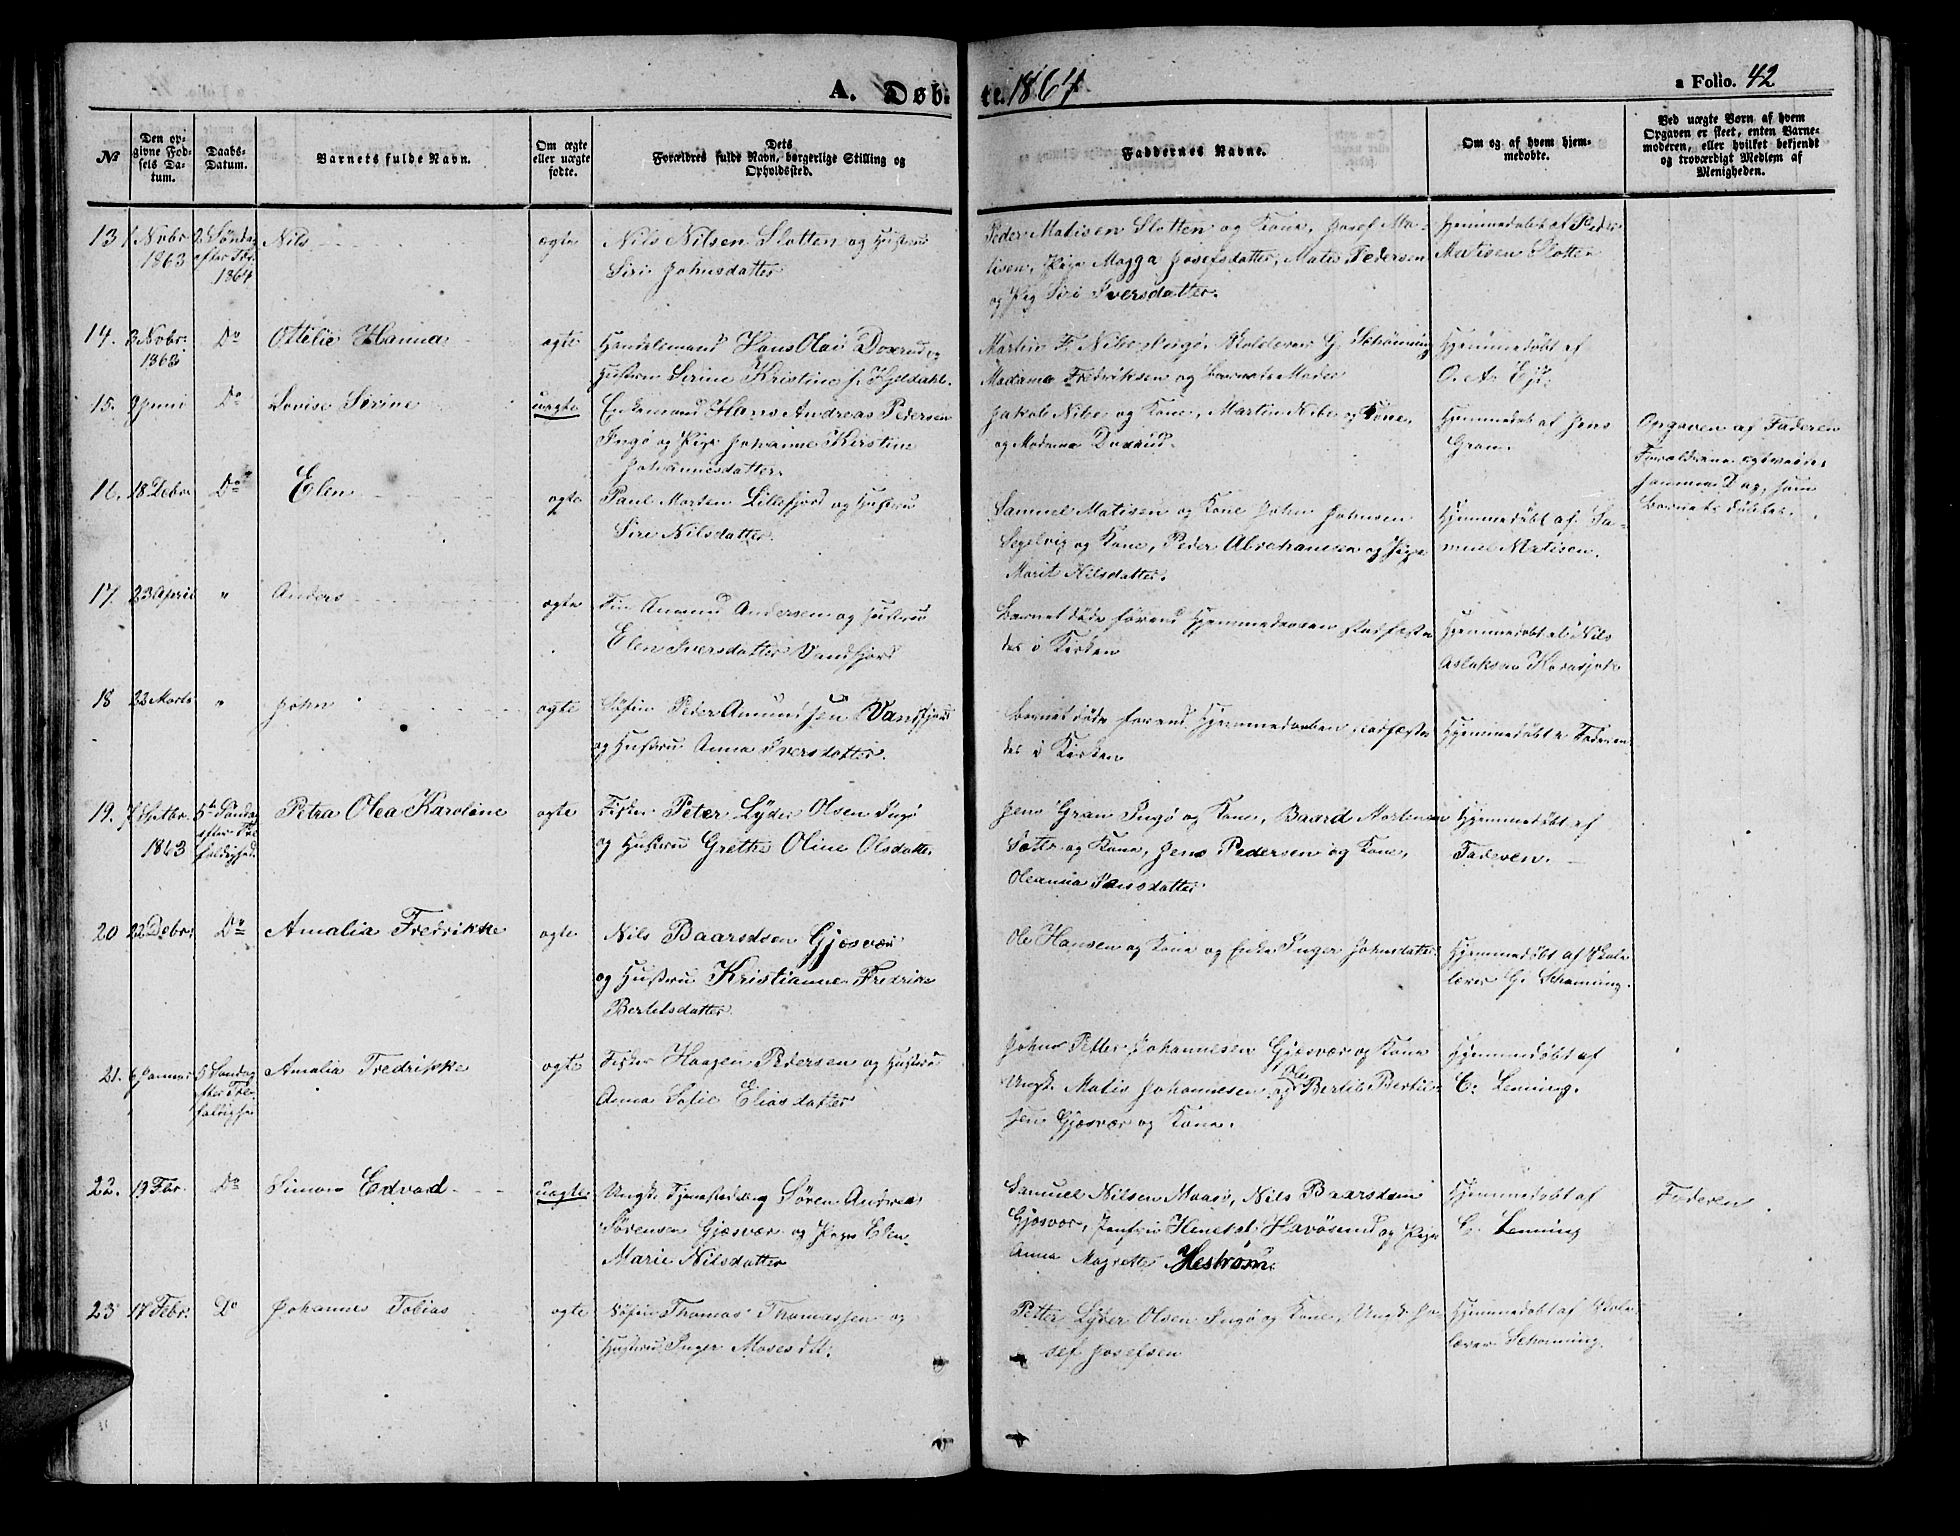 A. Døb-
te. 1864
a Folio. 42
No
Den op-
givne Fød-
sels Da-
tum.
Daabs-
Datum.
Barnets fulde Navn.
Om ægte
eller uægte
fødte.
Dets
Forældres fulde Navn, borgerlige Stilling og
Opholdssted.
Faddernes Navne.
Om og af hvem hjem-
medøbte.
Ved uægte Børn af hvem
Opgaven er skeet, enten Barne-
moderen, eller hvilket bekjendt
og troværdigt Medlem af
Menigheden.
13 1 Novbr Søndag Nils ægte Nils Nilsen Slotten og Hustru
1863 efter
1864 Siri Johnsdatter
Peder Matisen Slotten og Kone, Josef Ma-
tisen, Pige Magga Josefsdatter, Mates Pedersen
og Pig Siri Iversdatter.
Hjemmedøbt af Peder
Matisen Slotten
14. 3 Novbr. Do Ottelie Hanna ægte Handelsmand Hans Olai Doxrud og
1863 Hustru Serine Kristine f. Kjeldahl.
Martin F. Nibe, G. Schønning
Madame Fredriksen og Barnets Moder
Hjemmedøbt af
O. A.
15. 9 Juni Do Lovise Serine uægte Enkemand Hans Andreas Pedersen
Ingø og Pige Johanne Kirstine
Johannesdatter.
Jakob Nibe og Kone, Martin Nibe og Kone,
og Madame Doxrud.
Hjemmedøbt af Jens
Gran.
Opgaven af Faderen
Forældrene
samme Dag, som
Barnet døbtes.
16. 18 Debr. Do Elen ægte Paul Morten Lillefjord og Hustru
Siri Nilsdatter.
Samuel Matisen og Kone John Johnsen
Segelvig og Kone, Peder Abrahamsen og Pige
Marit Nilsdatter.
Hjemmedøbt af Sa-
muel Matisen.
17. 23 April " Anders ægte Fin Amund Andersen og Hustru
Elen Iversdatter Vandfjord
Barnet døde førend Hjemmedaaben stadfæste
des i Kirken
Hjemmedøbt af Nils
Aslaksen Karasjok
18 22 Marts " John ægte Søfin Peder Amundsen Vandfjord
og Hustru Anna Iversdatter.
Barnet døde førend Hjemmedaaben stadfæste
des i Kirken
Hjemmedøbt a. Faderen
19. 7 Septbr. 5te Søndag Petra Olea Karoline ægte Fisker Peter Lyder Olsen Ingø
1863 efter Tre-
foldighed. og Hustru Grethe Oline Olsdatter
Jens Gran Ingø og Kone, Baard Mortensen
og Kone, Jens Pedersen og Kone,
Oleanna Hansdatter
Hjemmedøbt af
Faderen.
20 22 Debr. Do Amalia Fredrikke ægte Nils Baardsen Gjesvær
og Hustru Kristianne Fredrike
Bertelsdatter
Ole Hansen og Kone og Enke Inger Johnsdatter
Hjemmedøbt af Skole
lærer G. Schønning.
21. 6 Januar 5 Søndag Amalia Fredrikke ægte Fisker Haagen Pedersen og Hustru
efter Tre-
foldighed Anna Sofie Eliasdatter
John Petter Johannesen Gjesvær og Kone
Ungk. Matis Johannesen, Ole og Bertil Bertil-
sen Gjesvær og Kone.
Hjemmedøbt af
C. Lenning.
22. 19 Fbr. Do Simon Edvard uægte Ungk. Søren Andreas
Sørensen Gjesvær og Pige Elen
Marie Nilsdatter
Samuel Nilsen Maasø, Nils Baardsen
Gjesvær, Jomfru Havøsund og Pige
Anna Magrethe Hestrøm.
Hjemmedøbt af
C. Lenning
Faderen
23 17 Febr. Do Johannes Tobias ægte Søfin Thomas Thomassen og
Hustru Inger Mosesdtt.
Petter Lyder Olsen Ingø og Kone, Ungk. Jo-
sef Josefsen
Hjemmedøbt af Skole-
lærer Schønning.